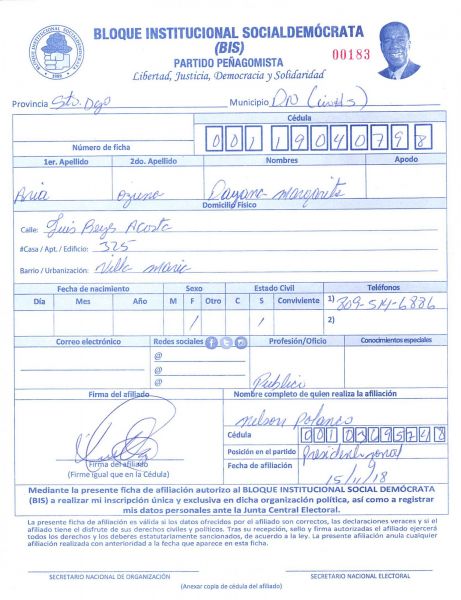 BLOQUE INSTITUCIONAL SOCIALDEMÓCRATA
(BIS)
PARTIDO PEÑAGOMISTA
Libertad, Justicia, Democracia y Solidaridad
00183
BLOQUE INSTITUCIONAL SOCIALDEMOCRATA
Provincia Sto. Dgo Municipio DN (
Cédula
Número de ficha 001 1904079 8
1er. Apellido 2do. Apellido Nombres Apodo
Aria Ozuna Dayana Margarita
Domicilio Físico
Calle: Luis Reyes Acosta
#Casa / Apt. / Edificio: 325
Barrio / Urbanización: Villa Maria
Fecha de nacimiento Sexo Estado Civil Teléfonos
Día Mes Año M F Otro C S Conviviente 1) 809-514-6886
/ / 2)
Correo electrónico Redes sociales Profesión/Oficio Conocimientos especiales
@
@
@ Publici
Firma del afiliado Nombre completo de quien realiza la afiliación
Nelson Polanco
Cédula
001 0369574 8
Posición en el partido Presidente zonal
Firma del afiliado
(Firme igual que en la Cédula)
Fecha de afiliación 15/11/18
Mediante la presente ficha de afiliación autorizo al BLOQUE INSTITUCIONAL SOCIAL DEMÓCRATA
(BIS) a realizar mi inscripción única y exclusiva en dicha organización política, así como a registrar
mis datos personales ante la Junta Central Electoral.
La presente ficha de afiliación es válida si los datos ofrecidos por el afiliado son correctos, las declaraciones veraces y si el
afiliado tiene el disfrute de sus derechos civiles y políticos. Tras su recepción, sello y firma autorizadas el afiliado ejercerá
todos los derechos y los deberes estatutariamente sancionados, de acuerdo a la ley. La presente afiliación anula cualquier
afiliación realizada con anterioridad a la fecha que aparece en esta ficha.
SECRETARIO NACIONAL DE ORGANIZACIÓN SECRETARIO NACIONAL ELECTORAL
(Anexar copia de cédula del afiliado)